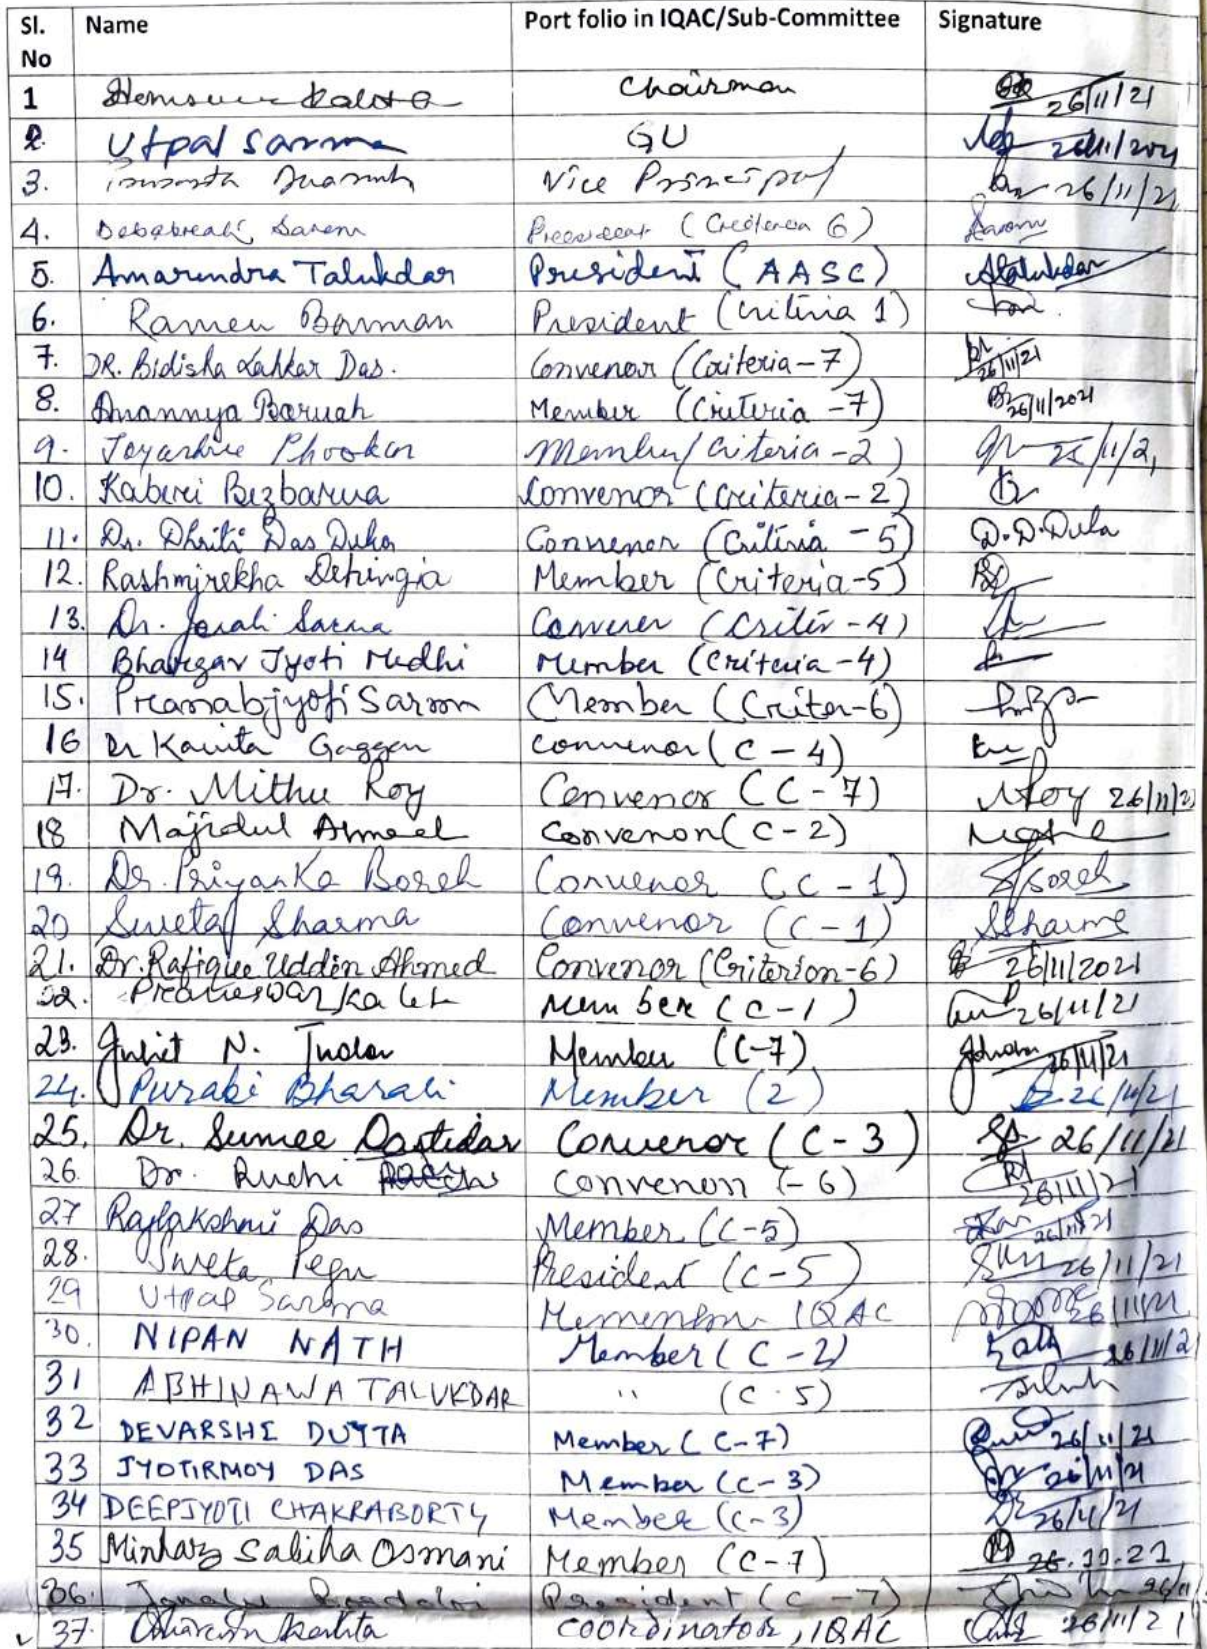 Sl. No Name Port folio in IQAC/Sub-Committee Signature
1 Kalita Chairman 26/11/21
2. Utpal Sarma GU 26/11/2021
3. Vice Principal 26/11/21
4. President (Critereon 6)
5. Amarendra Talukdar President (AASC) Atalukdar
6. Ramen Barman President (Criteria 1)
7. DR. Bidisha Lahkar Das. Convenor (Criteria-7) 26/11/21
8. Anannya Baruah Member (Criteria-7) 26/11/2021
9. Joyashree Phookan Member (Criteria-2)
10. Kaberi Bezbarua Convenor (Criteria-2)
11. Dr. Dhriti Das Duka Convenor (Criteria -5) D.D.Duka
12. Rashmirekha Dehingia Member (Criteria-5)
13. Dr. Jonali Sarma Convener (Criter-4)
14 Bhargav Jyoti Medhi Member (Criteria-4)
15. Pranabjyoti Sarma Member (Criter-6)
16 Dr Kavita Goggon Convenor (C-4)
17. Dr. Mithu Roy Convenor (C-7) MRoy 26/11/21
18 Majidul Ahmed Convenon (C-2)
19. Dr. Priyanka Borah Convenor (C-1)
20 Sweta Sharma Convenor (C-1) SSharma
21. Dr. Rafique Uddin Ahmed Convenor (Criterion-6) 26/11/2021
22. Member (C-1) 26/11/21
23. Juhit N. Member (C-7) 26/11/21
24. Purabi Bharali Member (2) 26/11/21
25. Dr. Sumee Dastidar Convenor (C-3) 26/11/21
26. Dr. Ruchi Convenon (-6) 26/11/21
27 Rajlakshmi Das Member (C-5) 26/11/21
28. Sweta Pegu President (C-5) 26/11/21
29 Utpal Sarma IQAC 26/11/21
30. NIPAN NATH Member (C-2) 26/11/21
31 ABHINAWA TALUKDAR " (C-5)
32 DEVARSHI DUTTA Member (C-7) 26/11/21
33 JYOTIRMOY DAS Member (C-3) 26/11/21
34 DEEPJYOTI CHAKRABORTY Member (C-3) 26/11/21
35 Minhaz Sabiha Osmani Member (C-7) 26.11.21
36. President (C-7)
37. Kalita Coordinator, IQAC 26/11/21